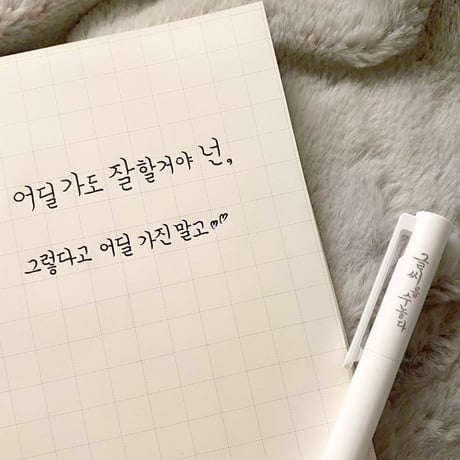 어딜 가도 잘할거야 넌,
그렇다고 어딜 가진 말고♡♡
글씨를 수놓다